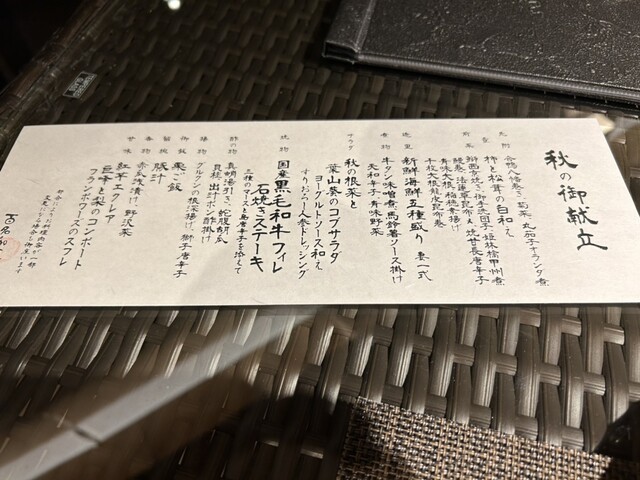 秋の御献立
先附
合鴨八幡巻き 菊菜 丸茄子オランダ煮
柿と松茸の白和え
前菜
鰻巻 法蓮草昆布〆 焼甘長唐辛子
青味大根 稲穂素揚げ
千枚大根龍皮昆布巻
造里
新鮮海鮮五種盛り 妻一式
煮物
牛タン味噌煮 馬鈴薯ソース掛け
天和辛子 青味野菜
サラダ
秋の根菜と
葉山葵のコブサラダ
ヨーグルトソース和え
すりおろし人参ドレッシング
焼物
国産黒毛和牛フィレ
石焼きステーキ
三種のソースと島唐辛子を添えて
酢の物
真蛸湯引き、蛇腹胡瓜
貝柱、出汁ポン酢掛け
揚物
グルクンの根菜揚げ、獅子唐辛子
御飯
栗ご飯
留椀
豚汁
香物
赤瓜浅漬け、野沢菜
甘味
紅芋エクレア
巨峰と梨のコンポート
フランボワーズのスフレ